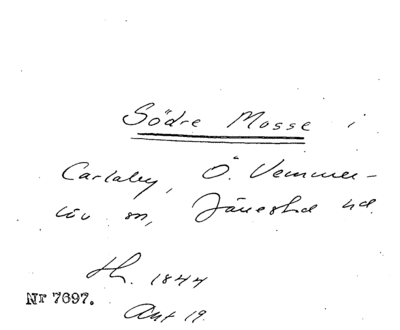 Södre Mosse i
Carlaby, Ö. Vemmer-
löv sn, Järrestad hd.
H. 1844
Nr 7697.
Akt 19.